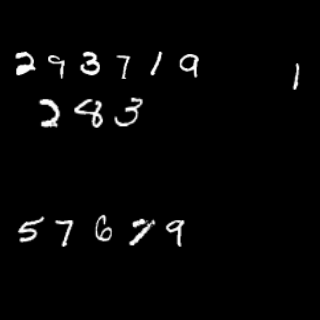 293719 1
283
57679